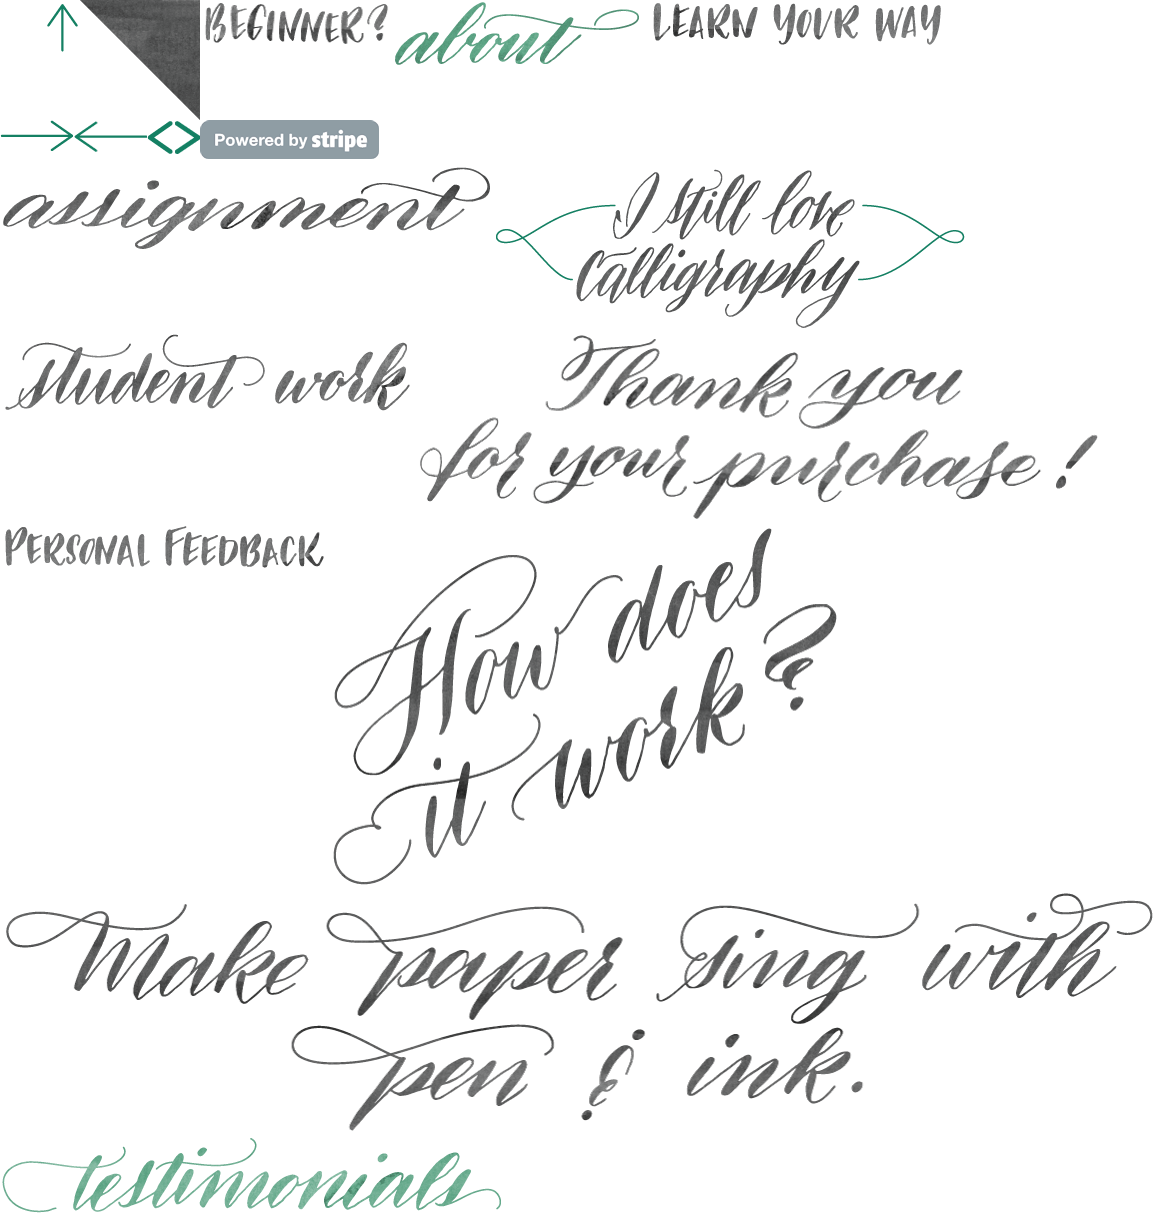 BEGINNER? about LEARN YOUR WAY
Powered by stripe
assignment
I still love
Calligraphy
student work
Thank you
for your purchase!
PERSONAL FEEDBACK
How does
it work?
Make paper sing with
pen & ink.
testimonials